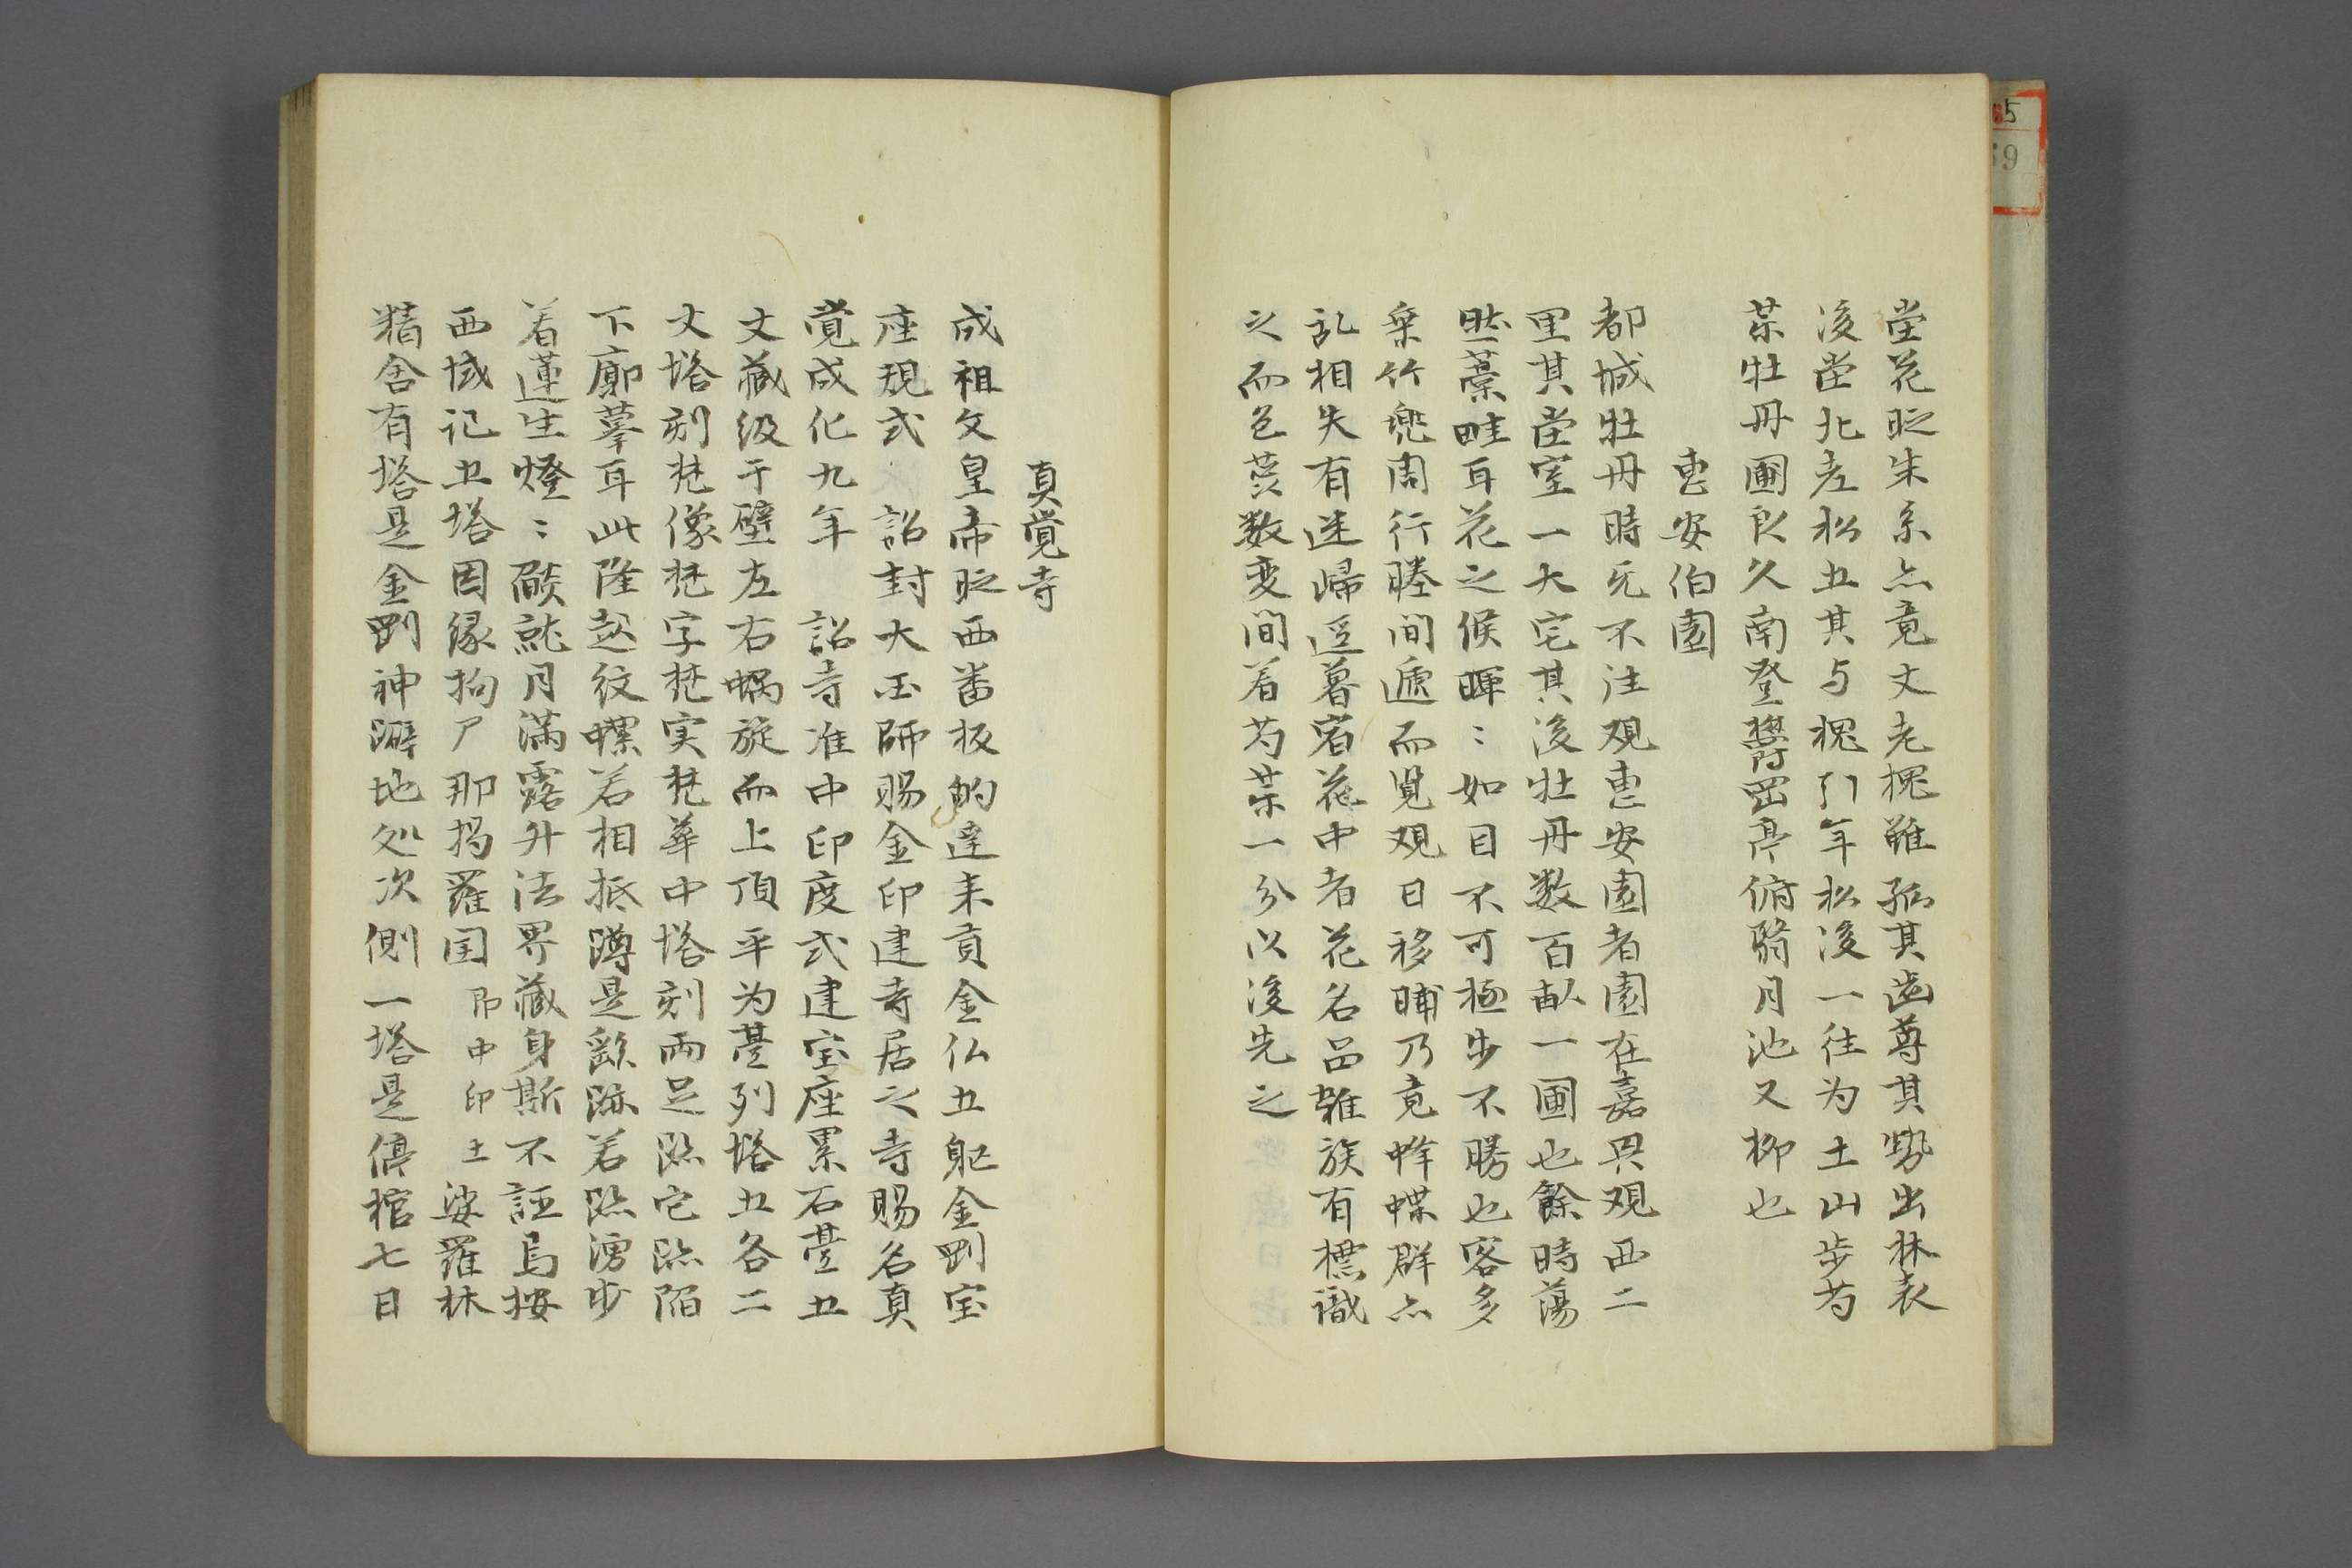 堂花时朱系点竟丈老槐雖孤其齒尊其勢出林表
後堂北老松五其与槐引年松後一径为土山步芍
薬牡丹圃良久南登欝罡亭俯翳月池又柳也
恵安伯園
都城牡丹時无不往观恵安園者園在嘉興观西二
里其堂室一大宅其後牡丹数百畝一圃也餘時蕩
然藁畦耳花之候暉〻如目不可極步不勝也客多
乗竹兜周行塍間遍而覓观日移晡乃竟蜂蝶群点
乱相失有迷帰逕暮宿花中者花名品雑族有標識
之而色蕊数变間着芍薬一分以後先之
真覚寺
成祖文皇帝时西番板的達来貢金仏五躯金剛宝
座规式 詔封大国師賜金印建寺居之寺賜名真
覚成化九年 詔寺准中印度式建宝座累石䑓五
丈藏级于壁左右蝸旋而上頂平为䑓列塔五各二
丈塔刻梵像梵字梵実梵華中塔刻両足跡它跡陥
下廓摹耳此隆起紋螺若相抵蹲是繇跡若跡湧步
着蓮生燈〻焰就月満露升法界藏身斯不誣焉按
西域记五塔因緣拘尸那掲羅国 即中印土 娑羅林
精舍有塔是金剛神躃地处次側一塔是俱棺七日